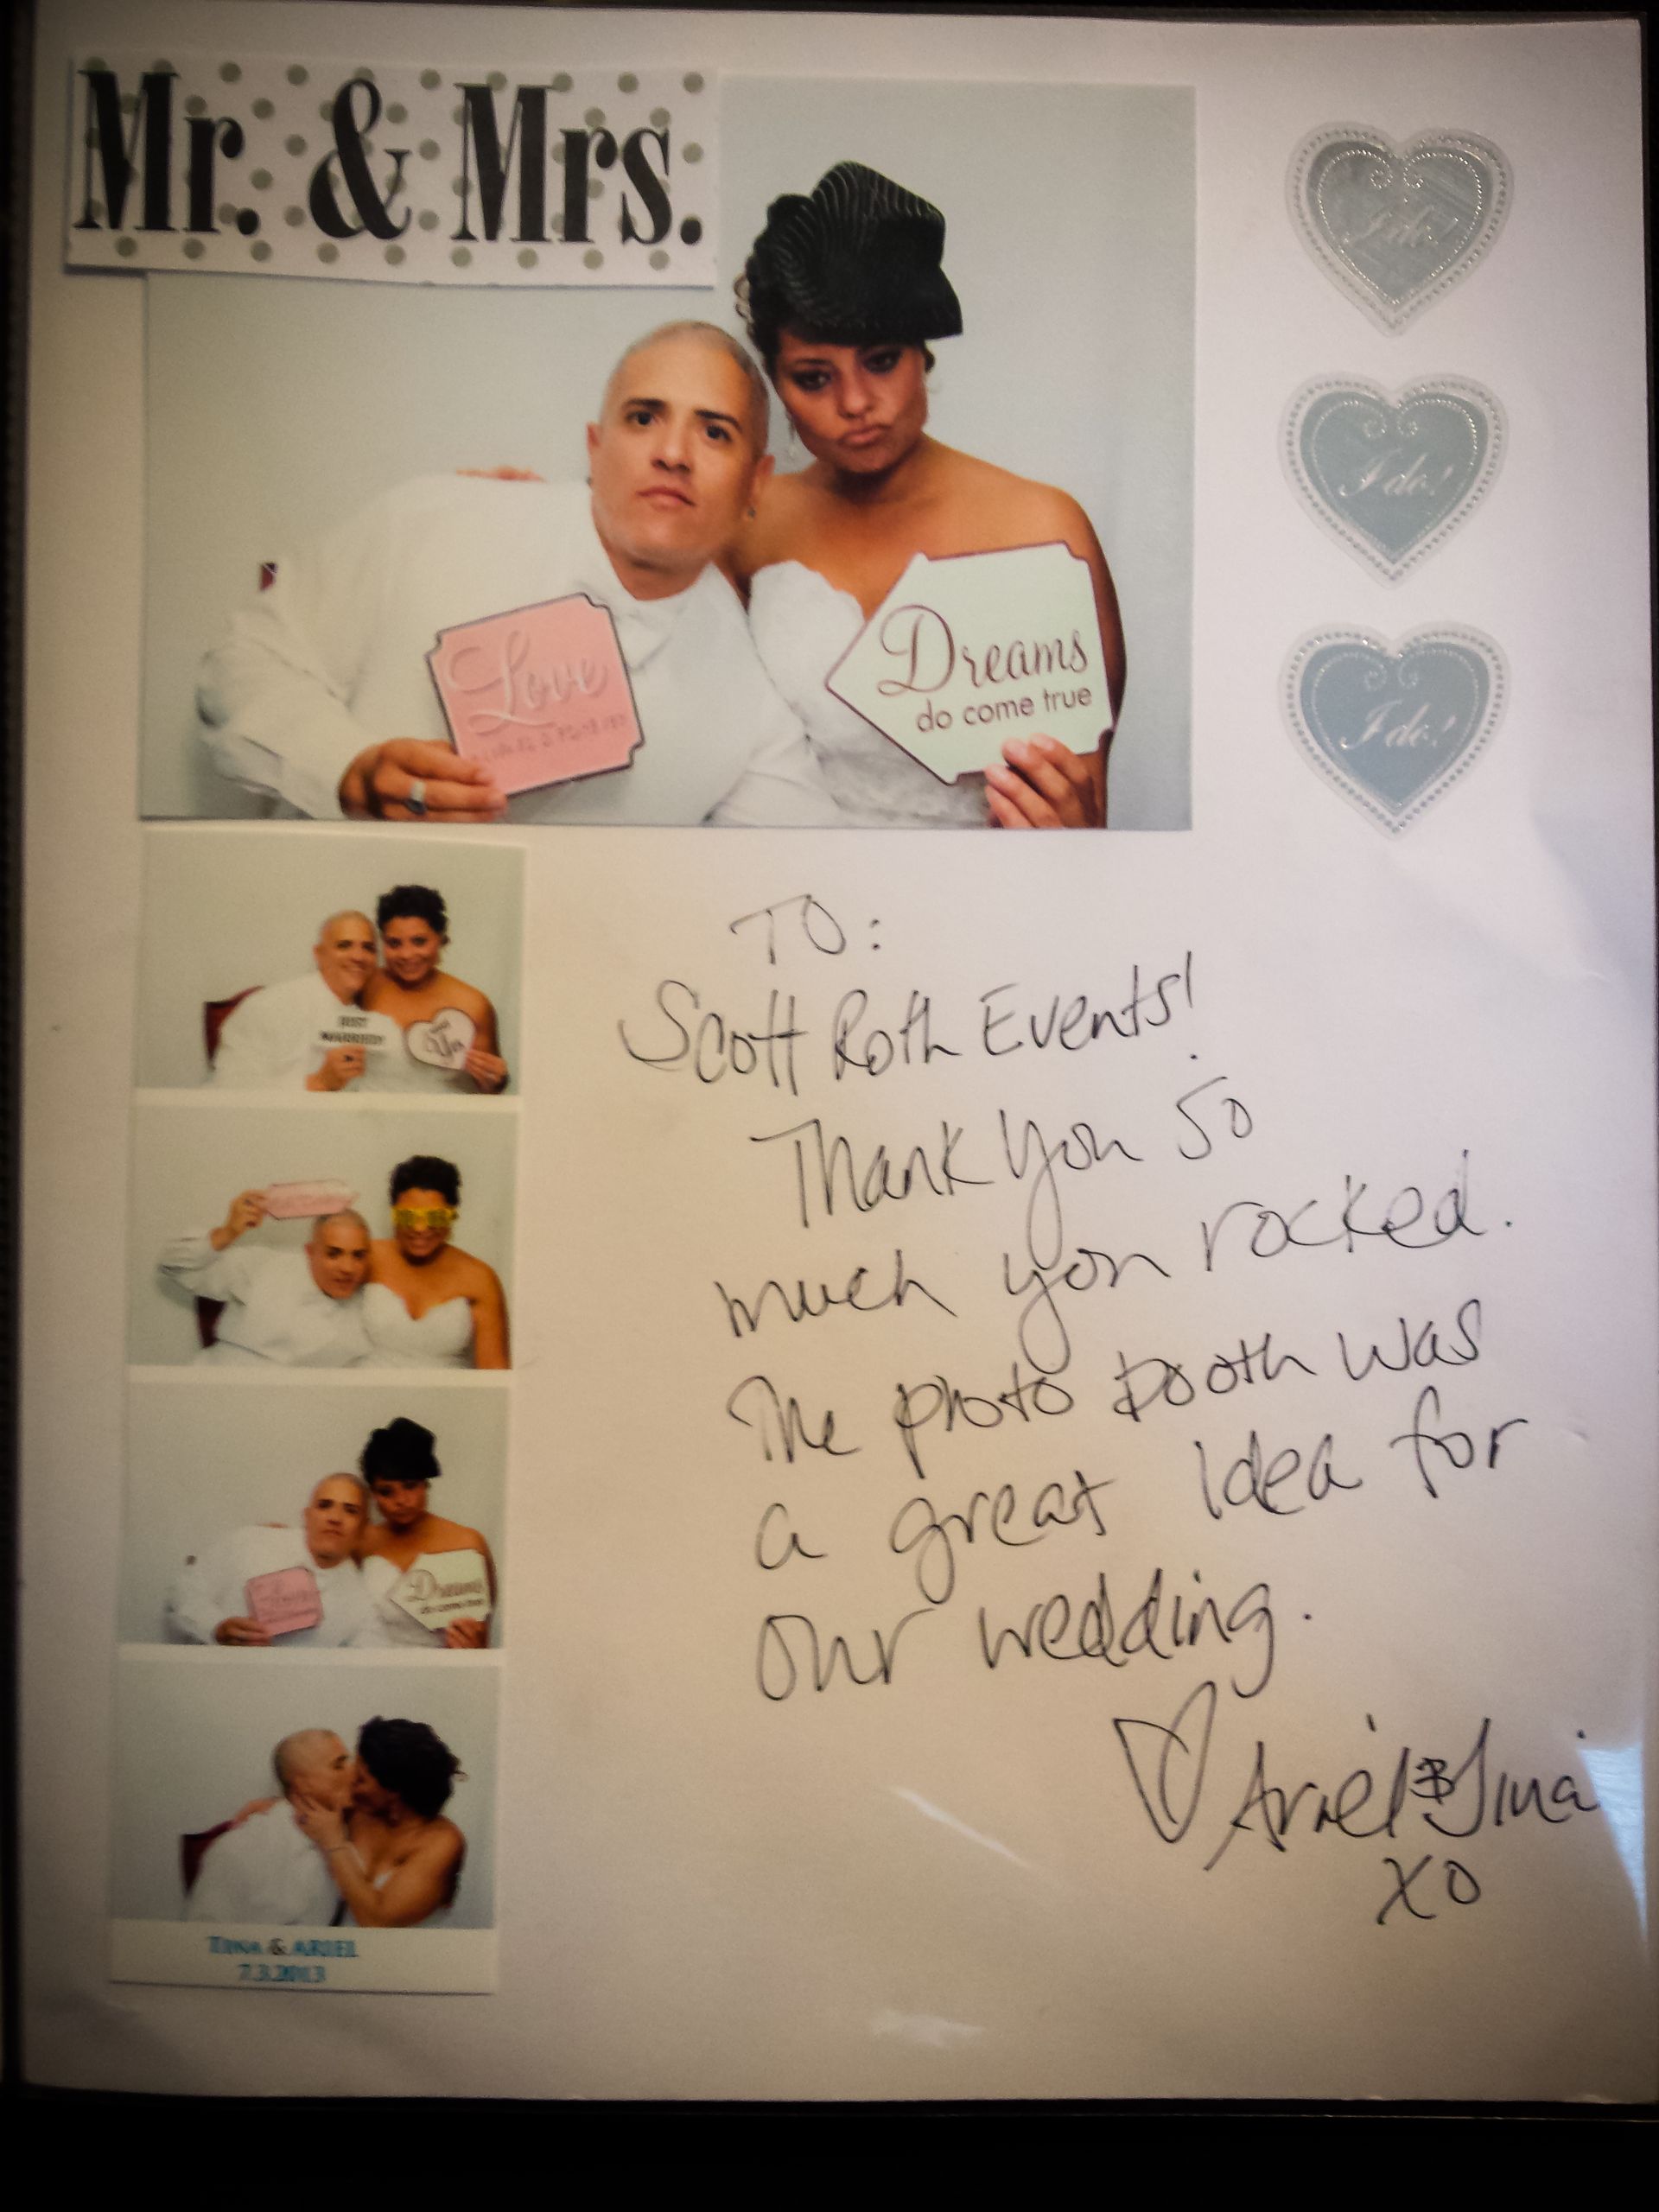 Mr. & Mrs.
I do!
I do!
I do!
Love
Dreams
do come true
JUST
MARRIED!
I
Do
Love
Dreams
do come true
TINA & ARIEL
7.3.2013
TO:
Scott Roth Events!
Thank you so
much you rocked.
The photo booth was
a great idea for
our wedding.
Ariel & Tina
XO